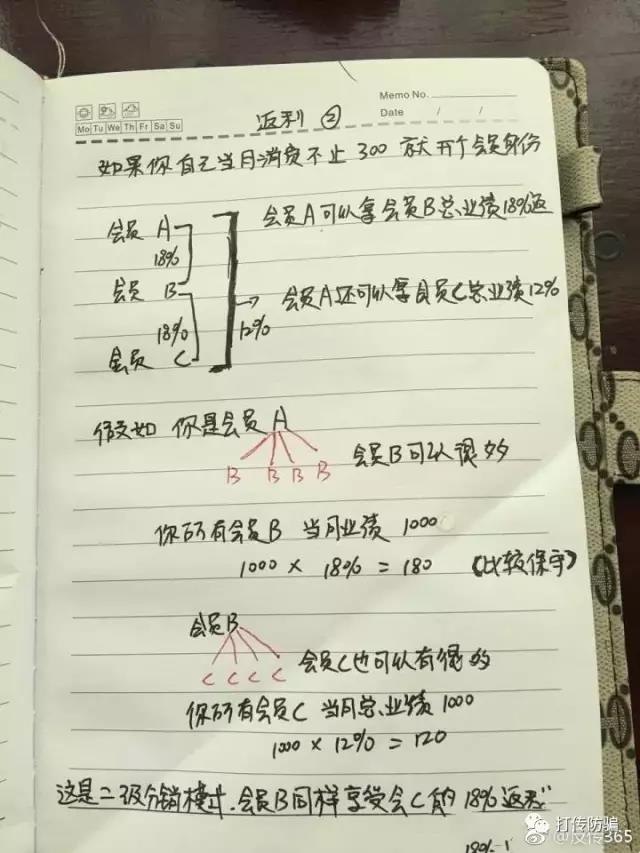 Memo No.
Mo Tu We Th Fr Sa Su
Date / /
返利 ②
如果你自己当月消费不止 300 就开个会员身份
会员 A
18%
会员 B
18%
会员 C
12%
会员A可以拿会员B总业绩18%返
会员A还可以拿会员C总业绩12%
假如 你是会员 A
B B B B
会员B可以很多
你所有会员B 当月业绩 1000
1000 × 18% = 180 (比较保守)
会员B
C C C C
会员C也可以有很多
你所有会员C 当月总业绩 1000
1000 × 12% = 120
这是二级分销模式.会员B同样享受会C的18%返利
打传防骗
@反传365